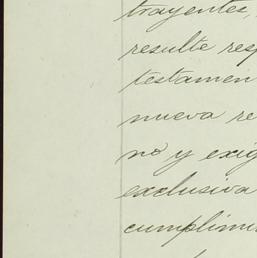 trayentes,
resulte resp
testamen
nueva re
no y exig
exclusiva
cumplimi